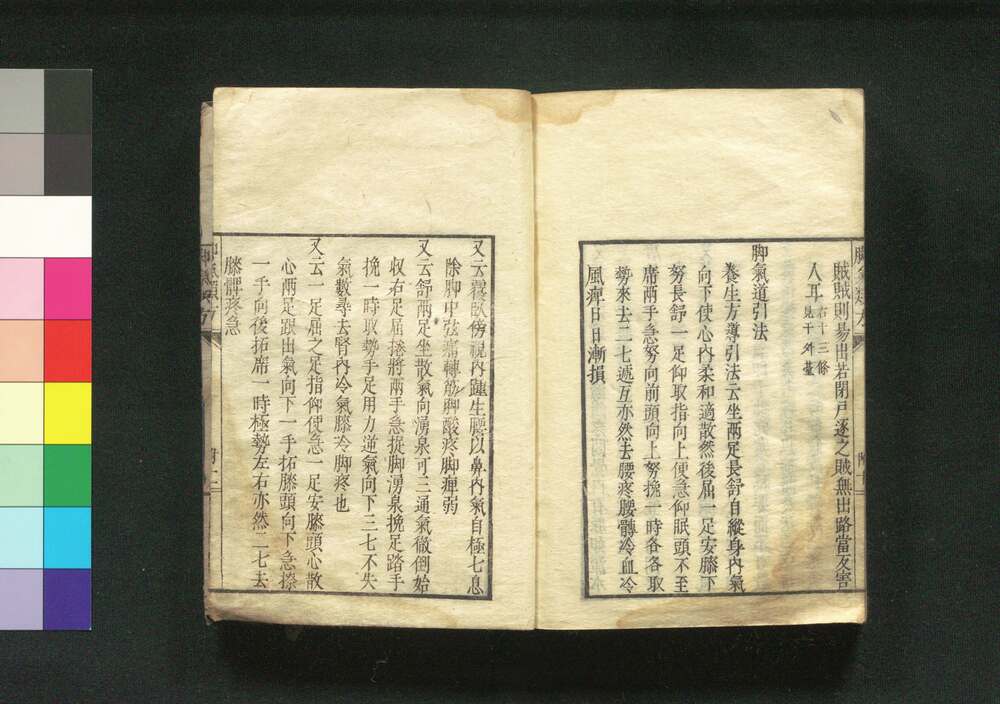 賊賊則易出若閉戶逐之賊無出路當反害
人耳右十三條見千外臺
脚氣道引法
養生方導引法云坐兩足長舒自縱身內氣
向下使心內柔和適散然後屈一足安膝下
努長舒一足仰取指向上便急仰眠頭不至
席兩手急努向前頭向上努挽一時各各取
勢來去二七遞互亦然去腰疼腰髆冷血冷
風痺日日漸損
又云覆臥傍視內踵生腰以鼻內氣自極七息
除脚中弦痛轉筋脚酸疼脚痺弱
又云舒兩足坐散氣向湧泉可三通氣徹倒始
收右足屈捲將兩手急捉脚湧泉挽足踏手
挽一時取勢手足用力逆氣向下三七不失
氣數尋去腎內冷氣膝冷脚疼也
又云一足屈之足指仰使急一足安膝頭心散
心兩足跟出氣向下一手拓膝頭向下急捺
一手向後拓席一時極勢左右亦然二七去
膝髀疼急